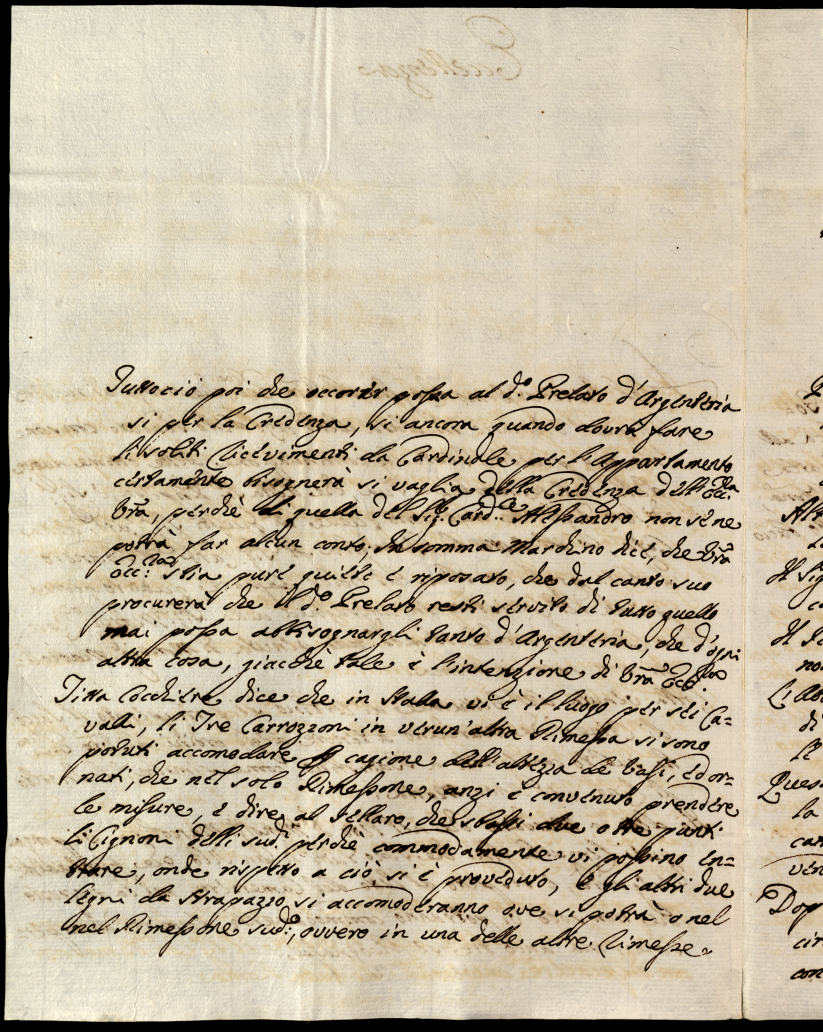 Tuttociò poi che occorrer possa al d.º Prelato d'Argenteria
si per la Credenza, si ancora quando dovrà fare
li soliti ricevimenti da Cardinale per l'Appartamento
certamente bisognerà si vaglia della Credenza dell'Ecc.za
Vra, perchè di quella del Sig. Card.le Alessandro non se ne
potrà far alcun conto. In somma Marchino dice, che Vra
Ecc.za stia pure quieto e riposato, che dal canto suo
procurerà che il d.º Prelato resti servito di tutto quello
mai possa abbisognargli tanto d'Argenteria, che d'ogni
altra cosa, giacchè tale è l'intenzione di Vra Ecc.za
Titta Cocchiere dice che in Stalla vi è il luogo per sei Ca=
valli, li Tre Carrozzoni in verun'altra Rimessa si sono
potuti accomodare p cagione dell'altezza de Vasi, ed or=
nati, che nel solo Rimessone, anzi è convenuto prendere
le misure, e dire al Sellaro, che sbassi due o tre punti
li Cignoni delli sud.i perchè commodamente vi possino en=
trare, onde rispetto a ciò si è proveduto, e gli altri due
legni da strapazzo si accomoderanno ove si potrà o nel
nel Rimessone sud.º, ovvero in una delle altre rimesse.